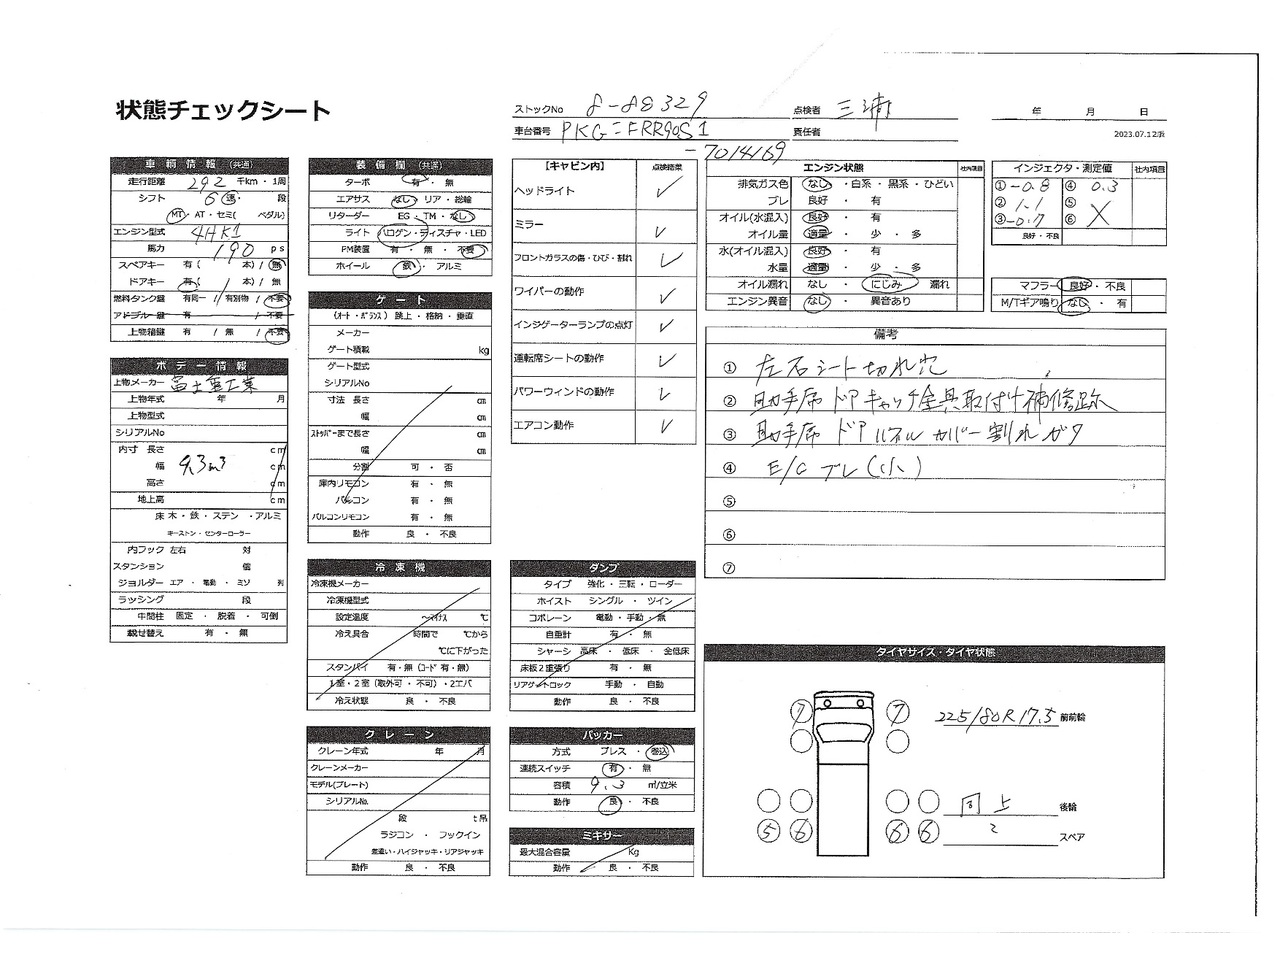 状態チェックシート
ストックNo 8-88329
点検者 三浦
年 月 日
車台番号 PKG-FRR90S1
-7014169
責任者
2023.07.12版
車輌情報(共通)
走行距離 292 千km・1周
シフト 6 速・ 段
MT・AT・セミ( ペダル)
エンジン型式 4HK1
馬力 190 ps
スペアキー 有( 本) / 無
ドアキー 有( 本) / 無
燃料タンク鍵 有同一 / 有別物 / 不要
アドブルー鍵 有 / 不要
上物箱鍵 有 / 無 / 不要
ボデー情報
上物メーカー 富士重工業
上物年式 年 月
上物型式
シリアルNo
内寸 長さ cm
幅 9.3m³ cm
高さ cm
地上高 cm
床 木・鉄・ステン ・アルミ
キーストン・センターローラー
内フック 左右 対
スタンション 個
ジョルダー エア・電動・ミゾ 列
ラッシング 段
中間柱 固定・脱着・可倒
載せ替え 有・無
装備欄(共通)
ターボ 有・無
エアサス なし・リア・総輪
リターダー EG・TM・なし
ライト ハロゲン・ディスチャ・LED
PM装置 有・無・不要
ホイール 鉄・アルミ
ゲート
(オート・バランス) 跳上・格納・垂直
メーカー
ゲート積載 kg
ゲート型式
シリアルNo
寸法 長さ cm
幅 cm
ストッパーまで長さ cm
幅 cm
分割 可・否
庫内リモコン 有・無
パルコン 有・無
パルコンリモコン 有・無
動作 良・不良
冷凍機
冷凍機メーカー
冷凍機型式
設定温度 ～マイナス ℃
冷え具合 時間で ℃から
℃に下がった
スタンバイ 有・無 (コード 有・無)
1室・2室 (取外可・不可)・2エバ
冷え状態 良・不良
クレーン
クレーン年式 年 月
クレーンメーカー
モデル(プレート)
シリアルNo.
段 t吊
ラジコン ・ フックイン
差違い・ハイジャッキ・リアジャッキ
動作 良・不良
【キャビン内】 点検結果
ヘッドライト ✓
ミラー ✓
フロントガラスの傷・ひび・割れ ✓
ワイパーの動作 ✓
インジゲーターランプの点灯 ✓
運転席シートの動作 ✓
パワーウィンドの動作 ✓
エアコン動作 ✓
ダンプ
タイプ 強化・三転・ローダー
ホイスト シングル・ツイン
コボレーン 電動・手動・無
自重計 有・無
シャーシ 高床・低床・全低床
床板2重張り 有・無
リアゲートロック 手動・自動
動作 良・不良
パッカー
方式 プレス・巻込
連続スイッチ 有・無
容積 9.3 ㎥/立米
動作 良・不良
ミキサー
最大混合容量 Kg
動作 良・不良
エンジン状態 社内項目
排気ガス色 なし・白系・黒系・ひどい
ブレ 良好・有
オイル(水混入) 良好・有
オイル量 適量・少・多
水(オイル混入) 良好・有
水量 適量・少・多
オイル漏れ なし・にじみ・漏れ
エンジン異音 なし・異音あり
インジェクタ・測定値 社内項目
① -0.8 ④ 0.3
② 1.1 ⑤
③ -0.7 ⑥ X
良好・不良
マフラー 良好・不良
M/Tギア鳴り なし・有
備考
① 左右シート切れ穴
② 助手席 ドアキャッチ金具取付け補修跡
③ 助手席 ドアパネル カバー割れガタ
④ E/Gブレ(小)
⑤
⑥
⑦
タイヤサイズ・タイヤ状態
7 7 225/80R17.5 前前輪
同上 後輪
5 6 6 6 スペア